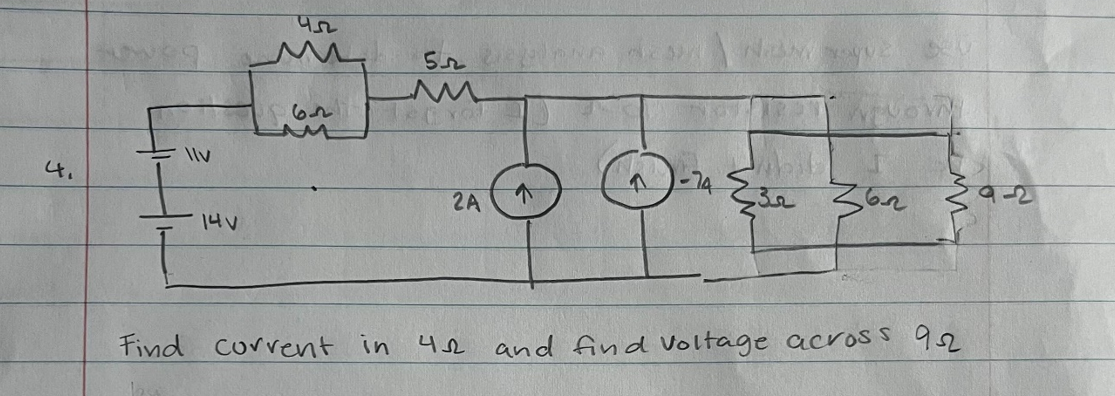 4Ω
5Ω
6Ω
4.
11V
14V
2A
-7A
3Ω
6Ω
9Ω
Find current in 4Ω and find voltage across 9Ω